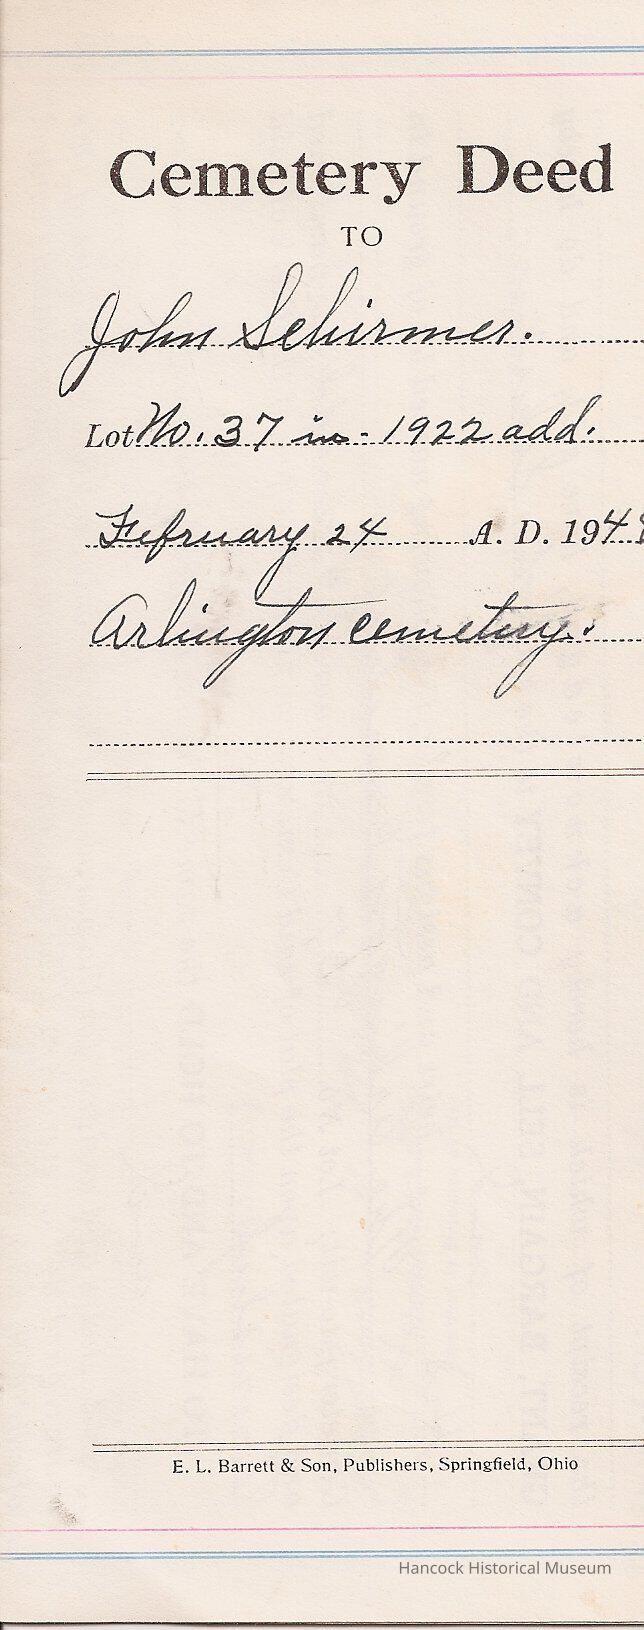 Cemetery Deed
TO
John Schirmer.
Lot No. 37 in - 1922 add.
February 24 A. D. 194
Arlington cemetery.
E. L. Barrett & Son, Publishers, Springfield, Ohio
Hancock Historical Museum